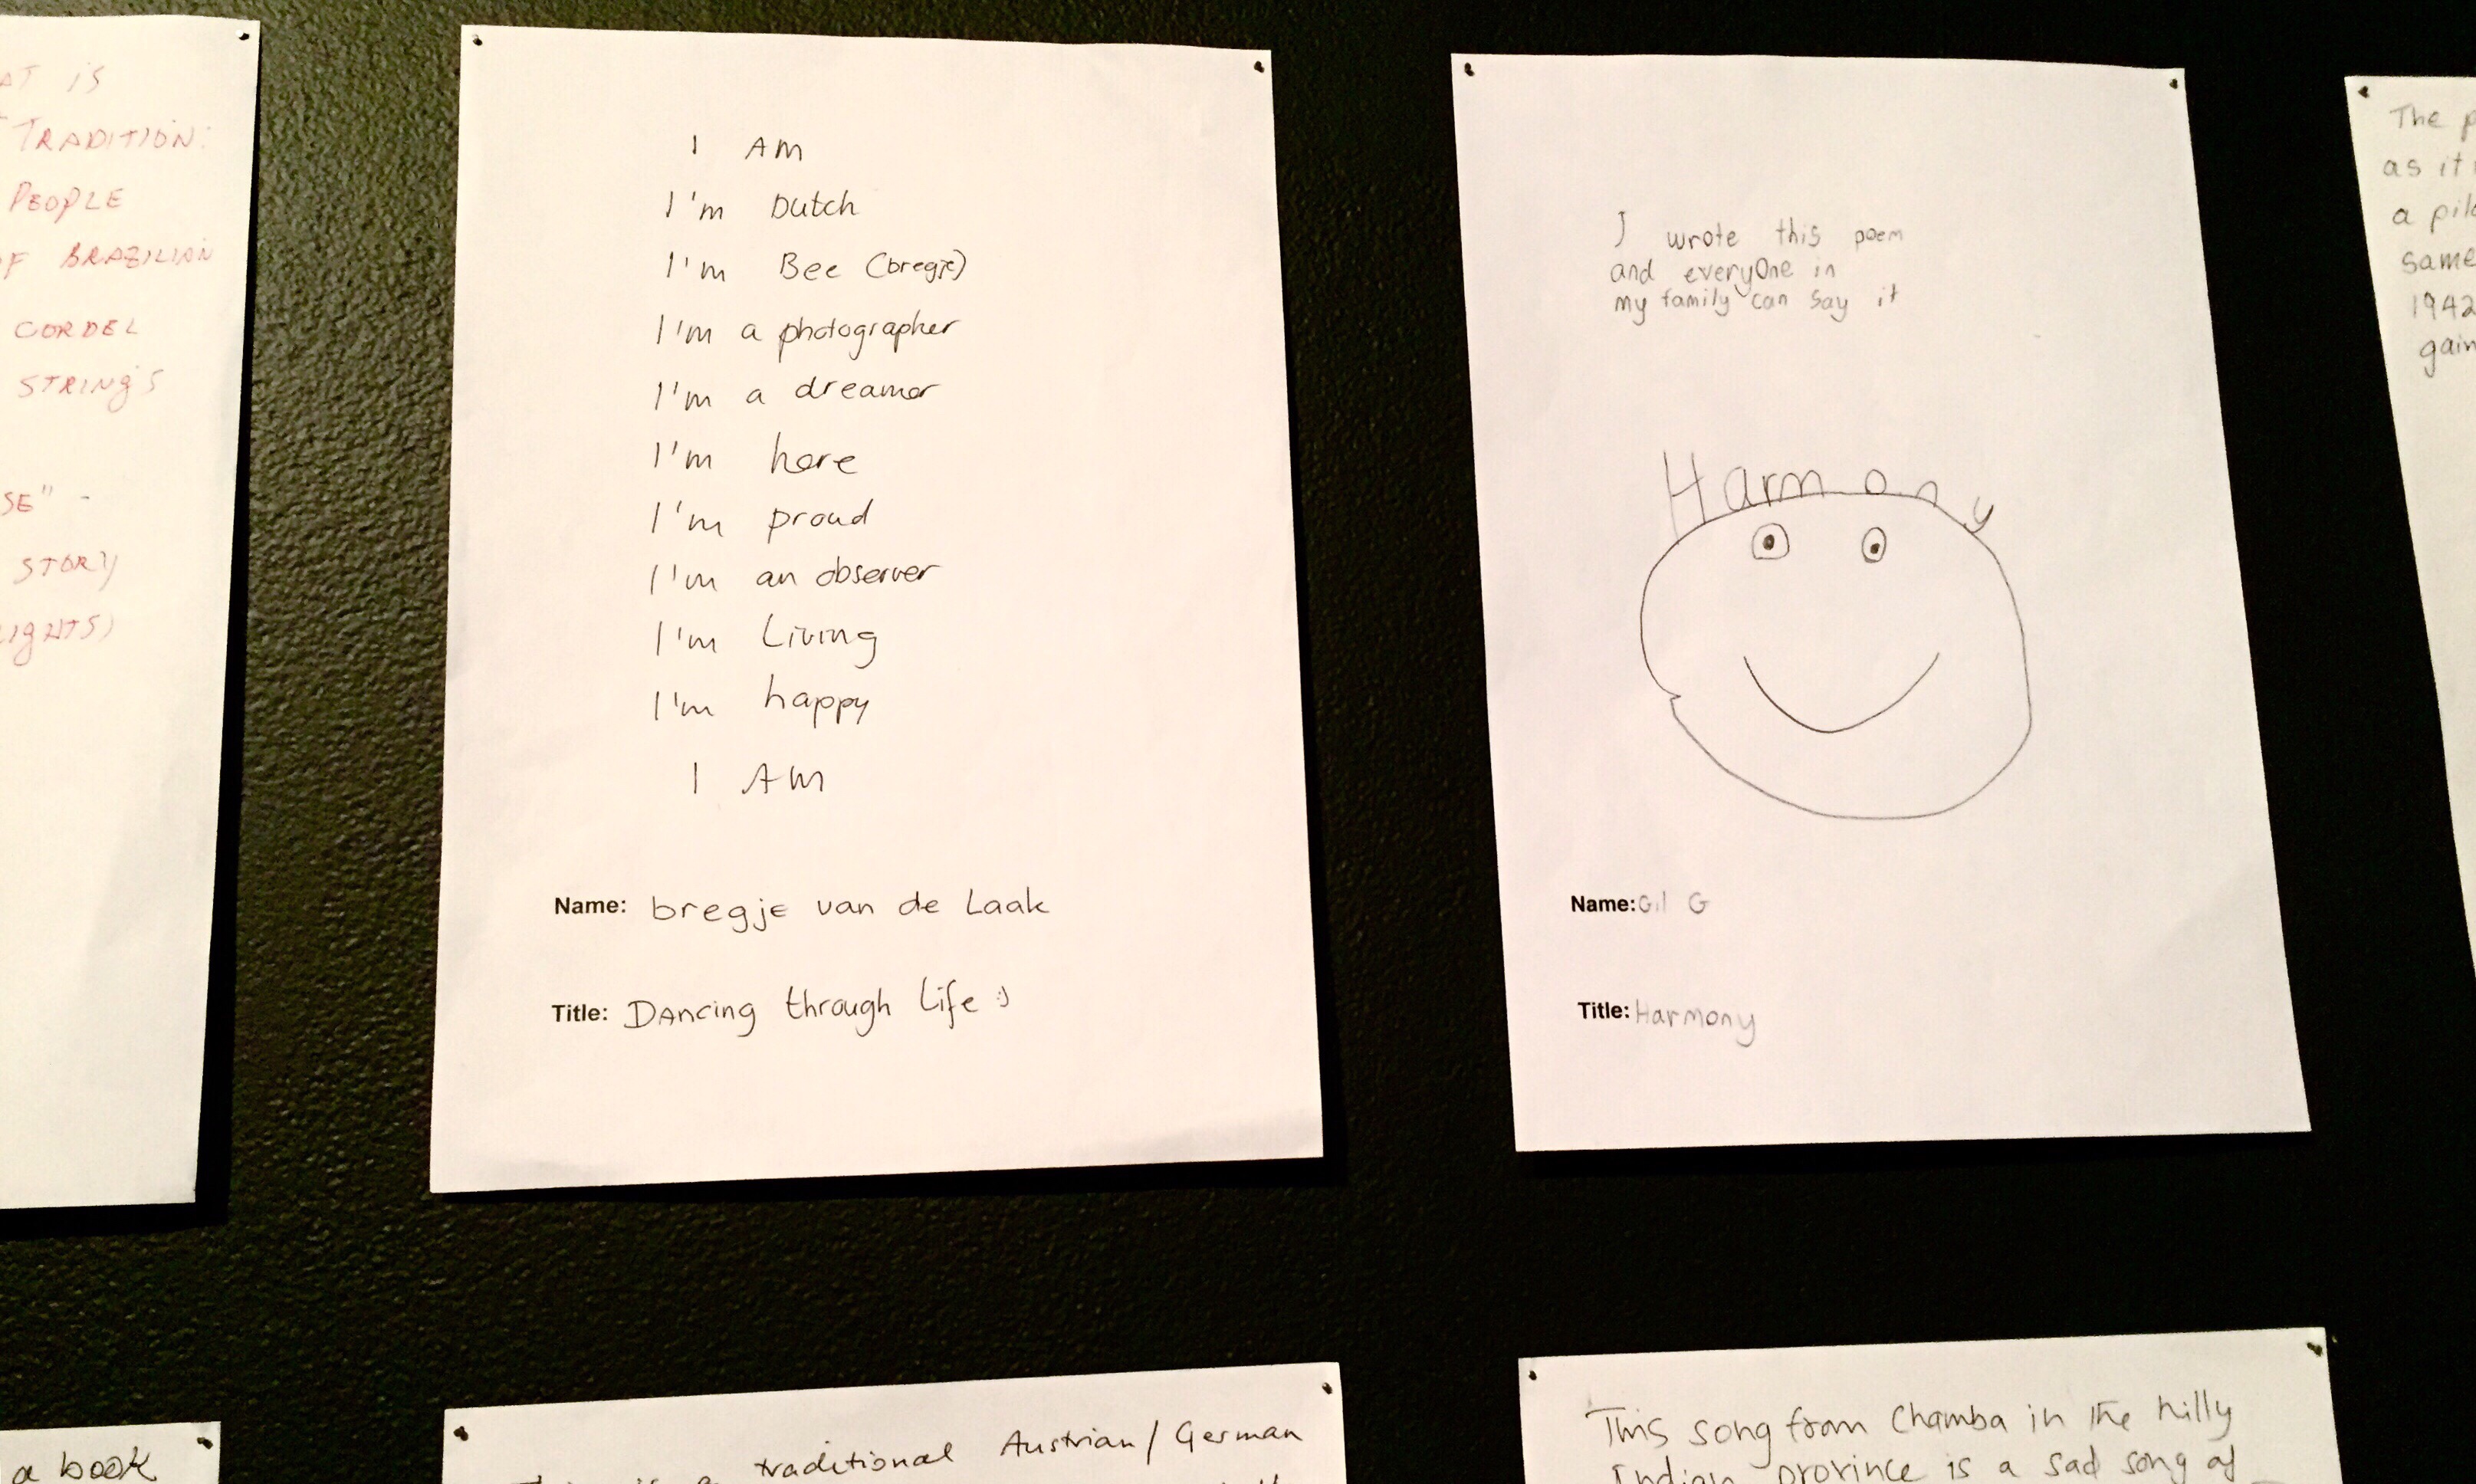 IS
TRADITION:
PEOPLE
OF BRAZILIAN
CORDEL
STRINGS
STORY
I AM
I'm Dutch
I'm Bee (bregje)
I'm a photographer
I'm a dreamer
I'm here
I'm proud
I'm an observer
I'm Living
I'm happy
I AM
Name: bregje van de Laak
Title: Dancing through Life :)
I wrote this poem
and everyOne in
my family can say it
Harmony
Name: Gil G
Title: Harmony
The
as it
a
same
1942
a book
traditional Austrian/German
This song from Chamba in the hilly
Indian province is a sad song of